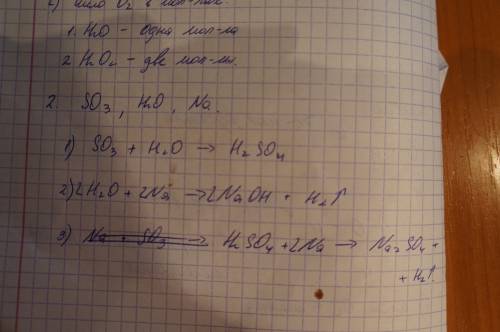 2) число O₂ в
1. H₂O – одна мол-ла
2. H₂O₂ – две мол-лы.
2. SO₃, H₂O, Na.
1) SO₃ + H₂O → H₂SO₄
2) 2H₂O + 2Na → 2NaOH + H₂↑
3) Na + SO₃ → H₂SO₄ + 2Na → Na₂SO₄ +
+ H₂↑.